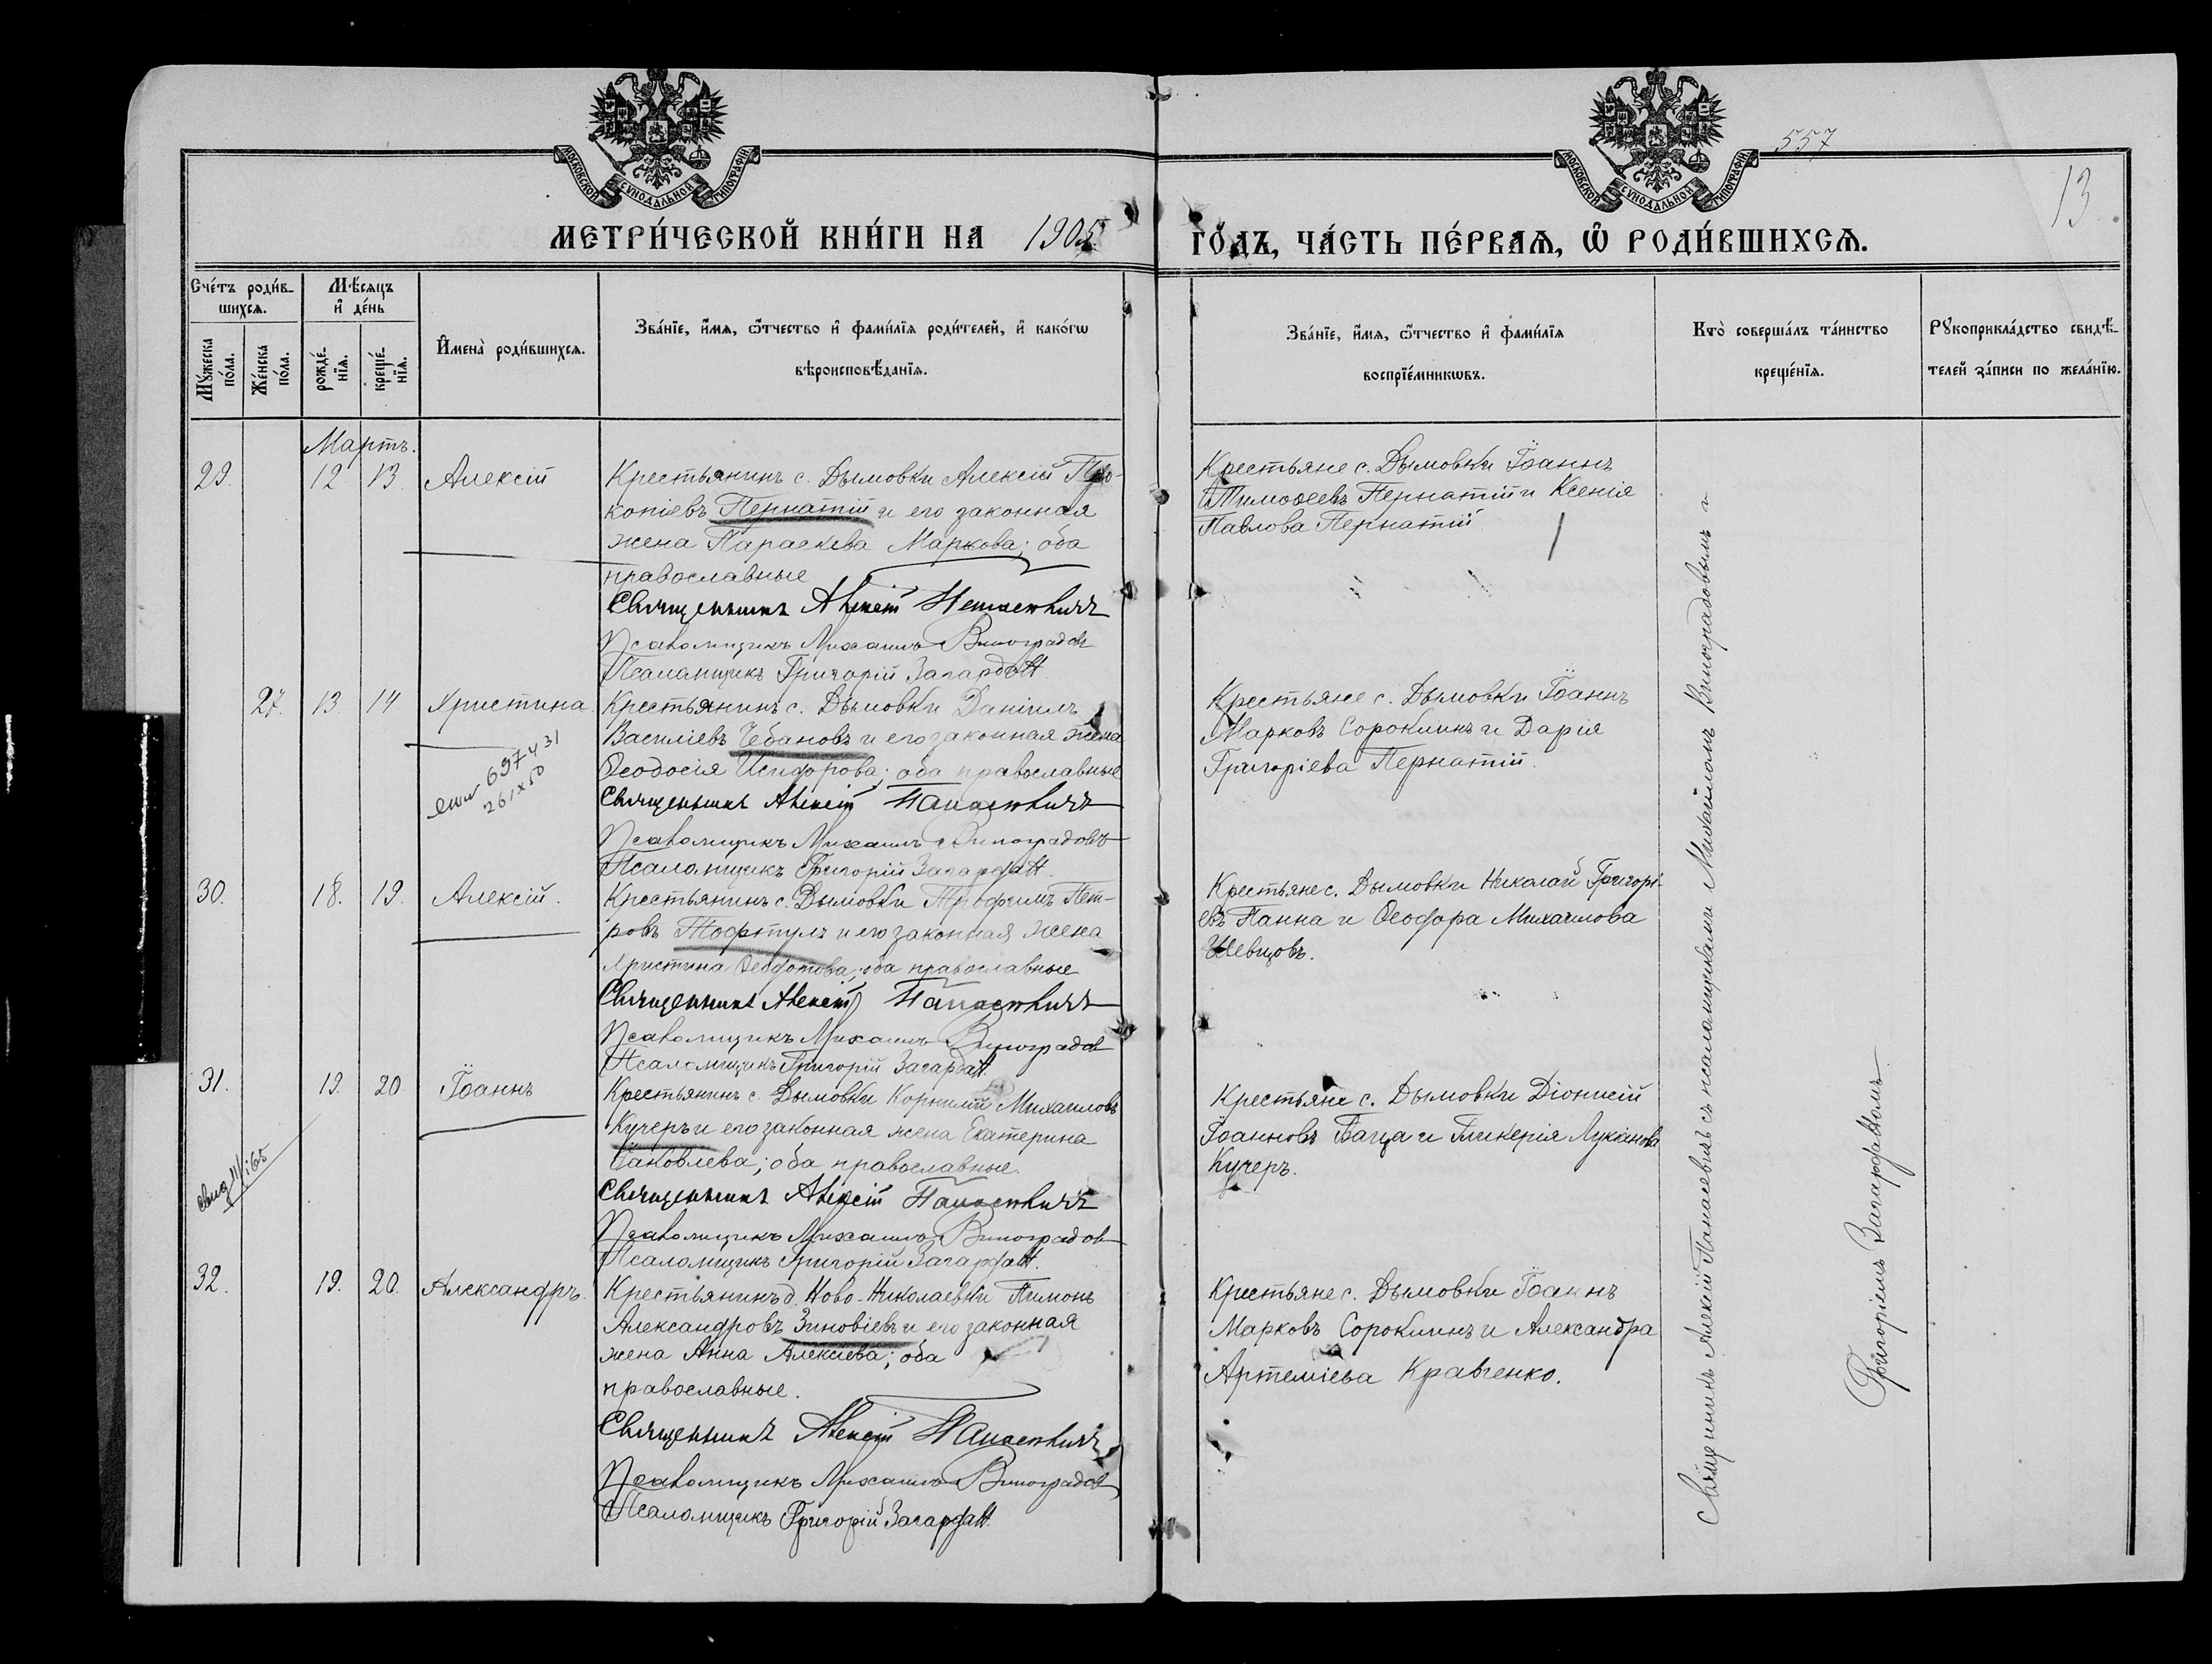 МОСКОВСКОЙ СѴНОДАЛЬНОЙ ТИПОГРАФІИ
МОСКОВСКОЙ СѴНОДАЛЬНОЙ ТИПОГРАФІИ
557
13
МЕТРИ́ЧЕСКОЙ КНИ́ГИ НА 1905
ГО́ДЪ, ЧА́СТЬ ПЕ́РВАѦ, Ѽ РОДИ́ВШИХСѦ.
Сче́тъ роди́в-
шихсѧ.
Мꙋ́жеска по́ла.
Же́нска по́ла.
Мѣ́сѧцъ
и҆ де́нь
рожде́-
нїѧ.
креще́-
нїѧ.
И҆мена̀ роди́вшихсѧ.
Зва́нїе, и҆́мѧ, ѻ҆́тчество и҆ фами́лїѧ роди́телей, и҆ како́гѡ
вѣроисповѣ́данїѧ.
Зва́нїе, и҆́мѧ, ѻ҆́тчество и҆ фами́лїѧ
воспрїе́мникѡвъ.
Кто̀ соверша́лъ та́инство
креще́нїѧ.
Рꙋкоприкла́дство свидѣ́-
телей за́писи по жела́нїю.
Мартъ.
29. 12 13 Алексій
Крестьянинъ с. Дымовки Алексій Про-
копіевъ Пернатій и его законная
жена Параскева Маркова; оба
православные
Священникъ Алексій Панасевичъ
Псаломщикъ Михаилъ Виноградовъ
Псаломщикъ Григорій Загардан
Крестьяне с. Дымовки Іоаннъ
Тимоѳеевъ Пернатій и Ксенія
Павлова Пернатій
27. 13 14 Христина
Крестьянинъ с. Дымовки Даніилъ
Василіевъ Чебановъ и его законная жена
Ѳеодосія Исидорова; оба православные
Священникъ Алексій Панасевичъ
Псаломщикъ Михаилъ Виноградовъ
Псаломщикъ Григорій Загардан
Крестьяне с. Дымовки Іоаннъ
Марковъ Сорокминъ и Дарія
Григоріева Пернатій.
697431
30. 18. 19. Алексій.
Крестьянинъ с. Дымовки Трофимъ Пет-
ровъ Тофтулъ и его законная жена
Христина Ѳедотова; оба православные
Священникъ Алексій Панасевичъ
Псаломщикъ Михаилъ Виноградовъ
Псаломщикъ Григорій Загардан
Крестьяне с. Дымовки Николай Григорі-
евъ Панна и Ѳеодора Михаилова
Шевцовъ.
31. 19. 20 Іоаннъ
Крестьянинъ с. Дымовки Корнилій Михаиловъ
Кучеръ и его законная жена Екатерина
Іаковлева; оба православные.
Священникъ Алексій Панасевичъ
Псаломщикъ Михаилъ Виноградовъ
Псаломщикъ Григорій Загардан.
Крестьяне с. Дымовки Діонисій
Іоанновъ Баца и Гликерія Лукіанова
Кучеръ.
32. 19. 20. Александръ.
Крестьянинъ д. Ново-Николаевки Пимонъ
Александровъ Зиновіевъ и его законная
жена Анна Алексіева; оба
православные.
Священникъ Алексій Панасевичъ
Псаломщикъ Михаилъ Виноградовъ
Псаломщикъ Григорій Загардан.
Крестьяне с. Дымовки Іоаннъ
Марковъ Сорокминъ и Александра
Артеміева Кравченко.
Священникъ Алексій Панасевичъ съ псаломщиками Михаиломъ Виноградовымъ и
Григоріемъ Загарданомъ